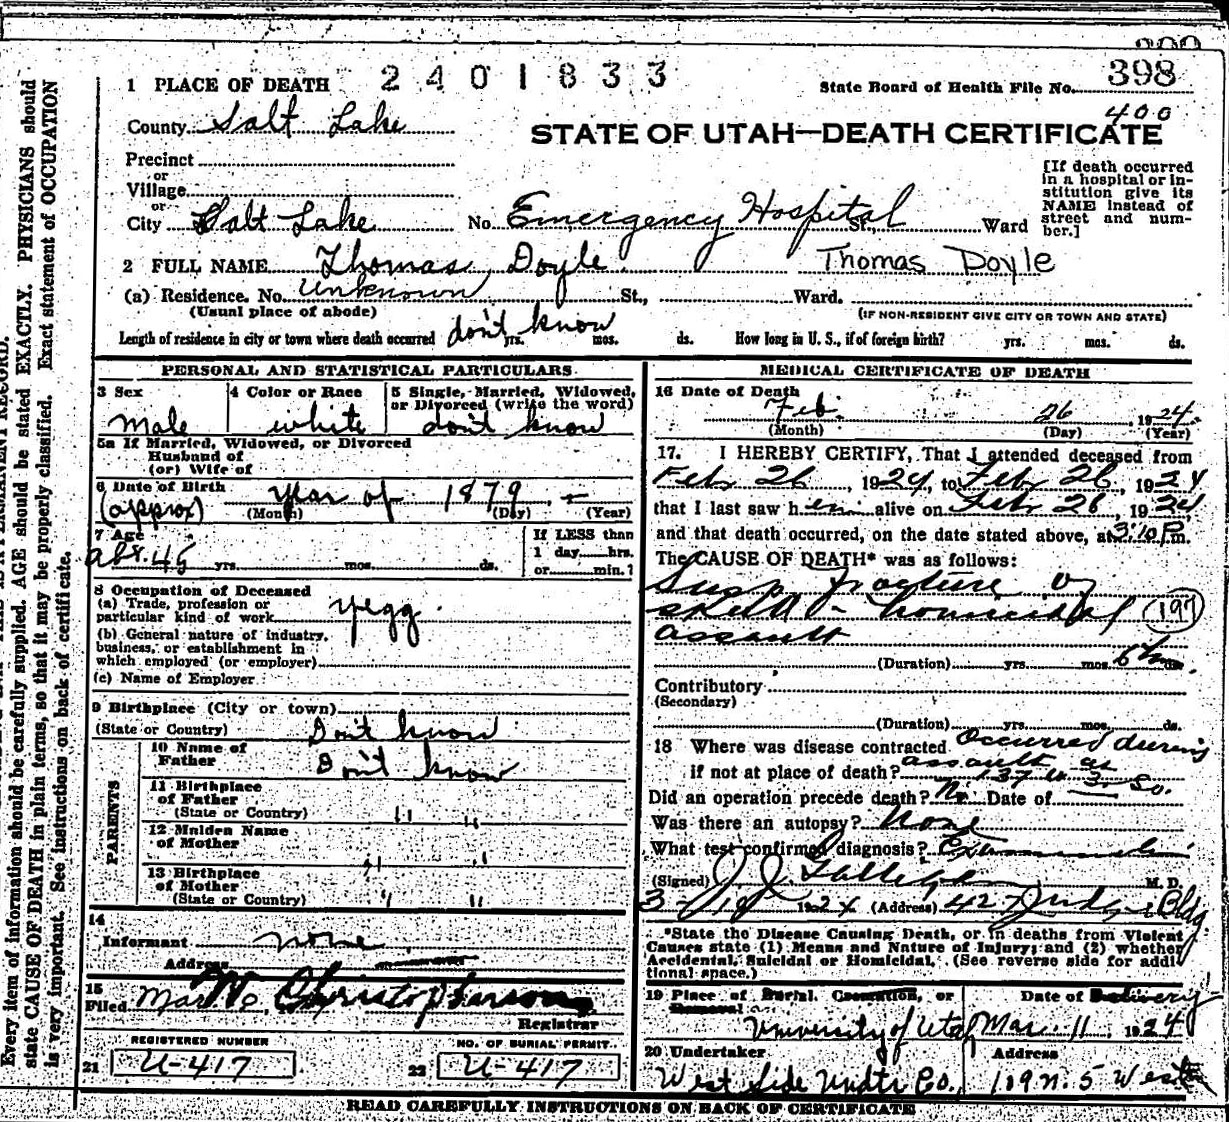 398
1 PLACE OF DEATH 2401833
State Board of Health File No. 398
400
County Salt Lake
STATE OF UTAH—DEATH CERTIFICATE
Precinct
or
Village
or
City Salt Lake No. Emergency Hospital St., Ward
[If death occurred
in a hospital or in-
stitution give its
NAME instead of
street and num-
ber.]
2 FULL NAME Thomas Doyle Thomas Doyle
(a) Residence. No. unknown St., Ward.
(Usual place of abode) (IF NON-RESIDENT GIVE CITY OR TOWN AND STATE)
Length of residence in city or town where death occurred don't know yrs. mos. ds. How long in U. S., if of foreign birth? yrs. mos. ds.
PERSONAL AND STATISTICAL PARTICULARS
3 Sex 4 Color or Race 5 Single, Married, Widowed,
or Divorced (write the word)
Male white don't know
5a If Married, Widowed, or Divorced
Husband of
(or) Wife of
6 Date of Birth year of 1879
(approx) (Month) (Day) (Year)
7 Age If LESS than
abt. 45 yrs. mos. ds. 1 day hrs.
or min.?
8 Occupation of Deceased
(a) Trade, profession or
particular kind of work yegg
(b) General nature of industry,
business, or establishment in
which employed (or employer)
(c) Name of Employer
9 Birthplace (City or town)
(State or Country) Don't know
PARENTS
10 Name of
Father Don't know
11 Birthplace
of Father
(State or Country) " "
12 Maiden Name
of Mother " "
13 Birthplace
of Mother
(State or Country) " "
14
Informant none
Address
15
Filed Mar W. Christopherson
Registrar
REGISTERED NUMBER NO. OF BURIAL PERMIT.
21 U-417 22 U-417
MEDICAL CERTIFICATE OF DEATH
16 Date of Death
Feb. 26 1924
(Month) (Day) (Year)
17. I HEREBY CERTIFY, That I attended deceased from
Feb 26, 1924, to Feb 26, 1924
that I last saw him alive on Feb 26, 1924
and that death occurred, on the date stated above, at 3:10 P.m.
The CAUSE OF DEATH* was as follows:
fracture of
skull - homicidal 197
assault
(Duration) yrs. mos. ds.
Contributory
(Secondary)
(Duration) yrs. mos. ds.
18 Where was disease contracted Occurred during
assault at
if not at place of death? 137 W 3 So.
Did an operation precede death? No Date of
Was there an autopsy? none
What test confirmed diagnosis?
(Signed) J. J. M. D.
3- 1924 (Address) 427 Judge Bldg
*State the Disease Causing Death, or in deaths from Violent
Causes state (1) Means and Nature of Injury; and (2) whether
Accidental, Suicidal or Homicidal. (See reverse side for addi-
tional space.)
19 Place of Burial, Cremation, or Date of Delivery
Removal
University of Utah Mar. 11, 1924
20 Undertaker Address
West Side Undtr Co., 109 N. 5 West
READ CAREFULLY INSTRUCTIONS ON BACK OF CERTIFICATE
Every item of information should be carefully supplied. AGE should be stated EXACTLY. PHYSICIANS should
state CAUSE OF DEATH in plain terms, so that it may be properly classified. Exact statement of OCCUPATION
is very important. See instructions on back of certificate.